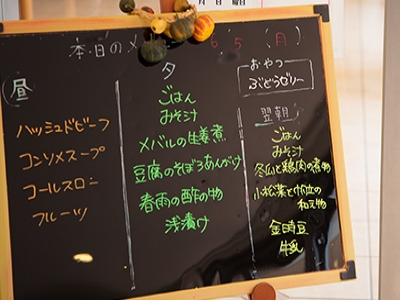 月 日 曜日
本日のメ
6 5 (月)
昼
ハッシュドビーフ
コンソメスープ
コールスロー
フルーツ
夕
ごはん
みそ汁
メバルの生姜煮
豆腐のそぼろあんかけ
春雨の酢の物
浅漬け
おやつ
ぶどうゼリー
翌朝
ごはん
みそ汁
冬瓜と鶏肉の煮物
小松菜と
和え物
金時豆
牛乳